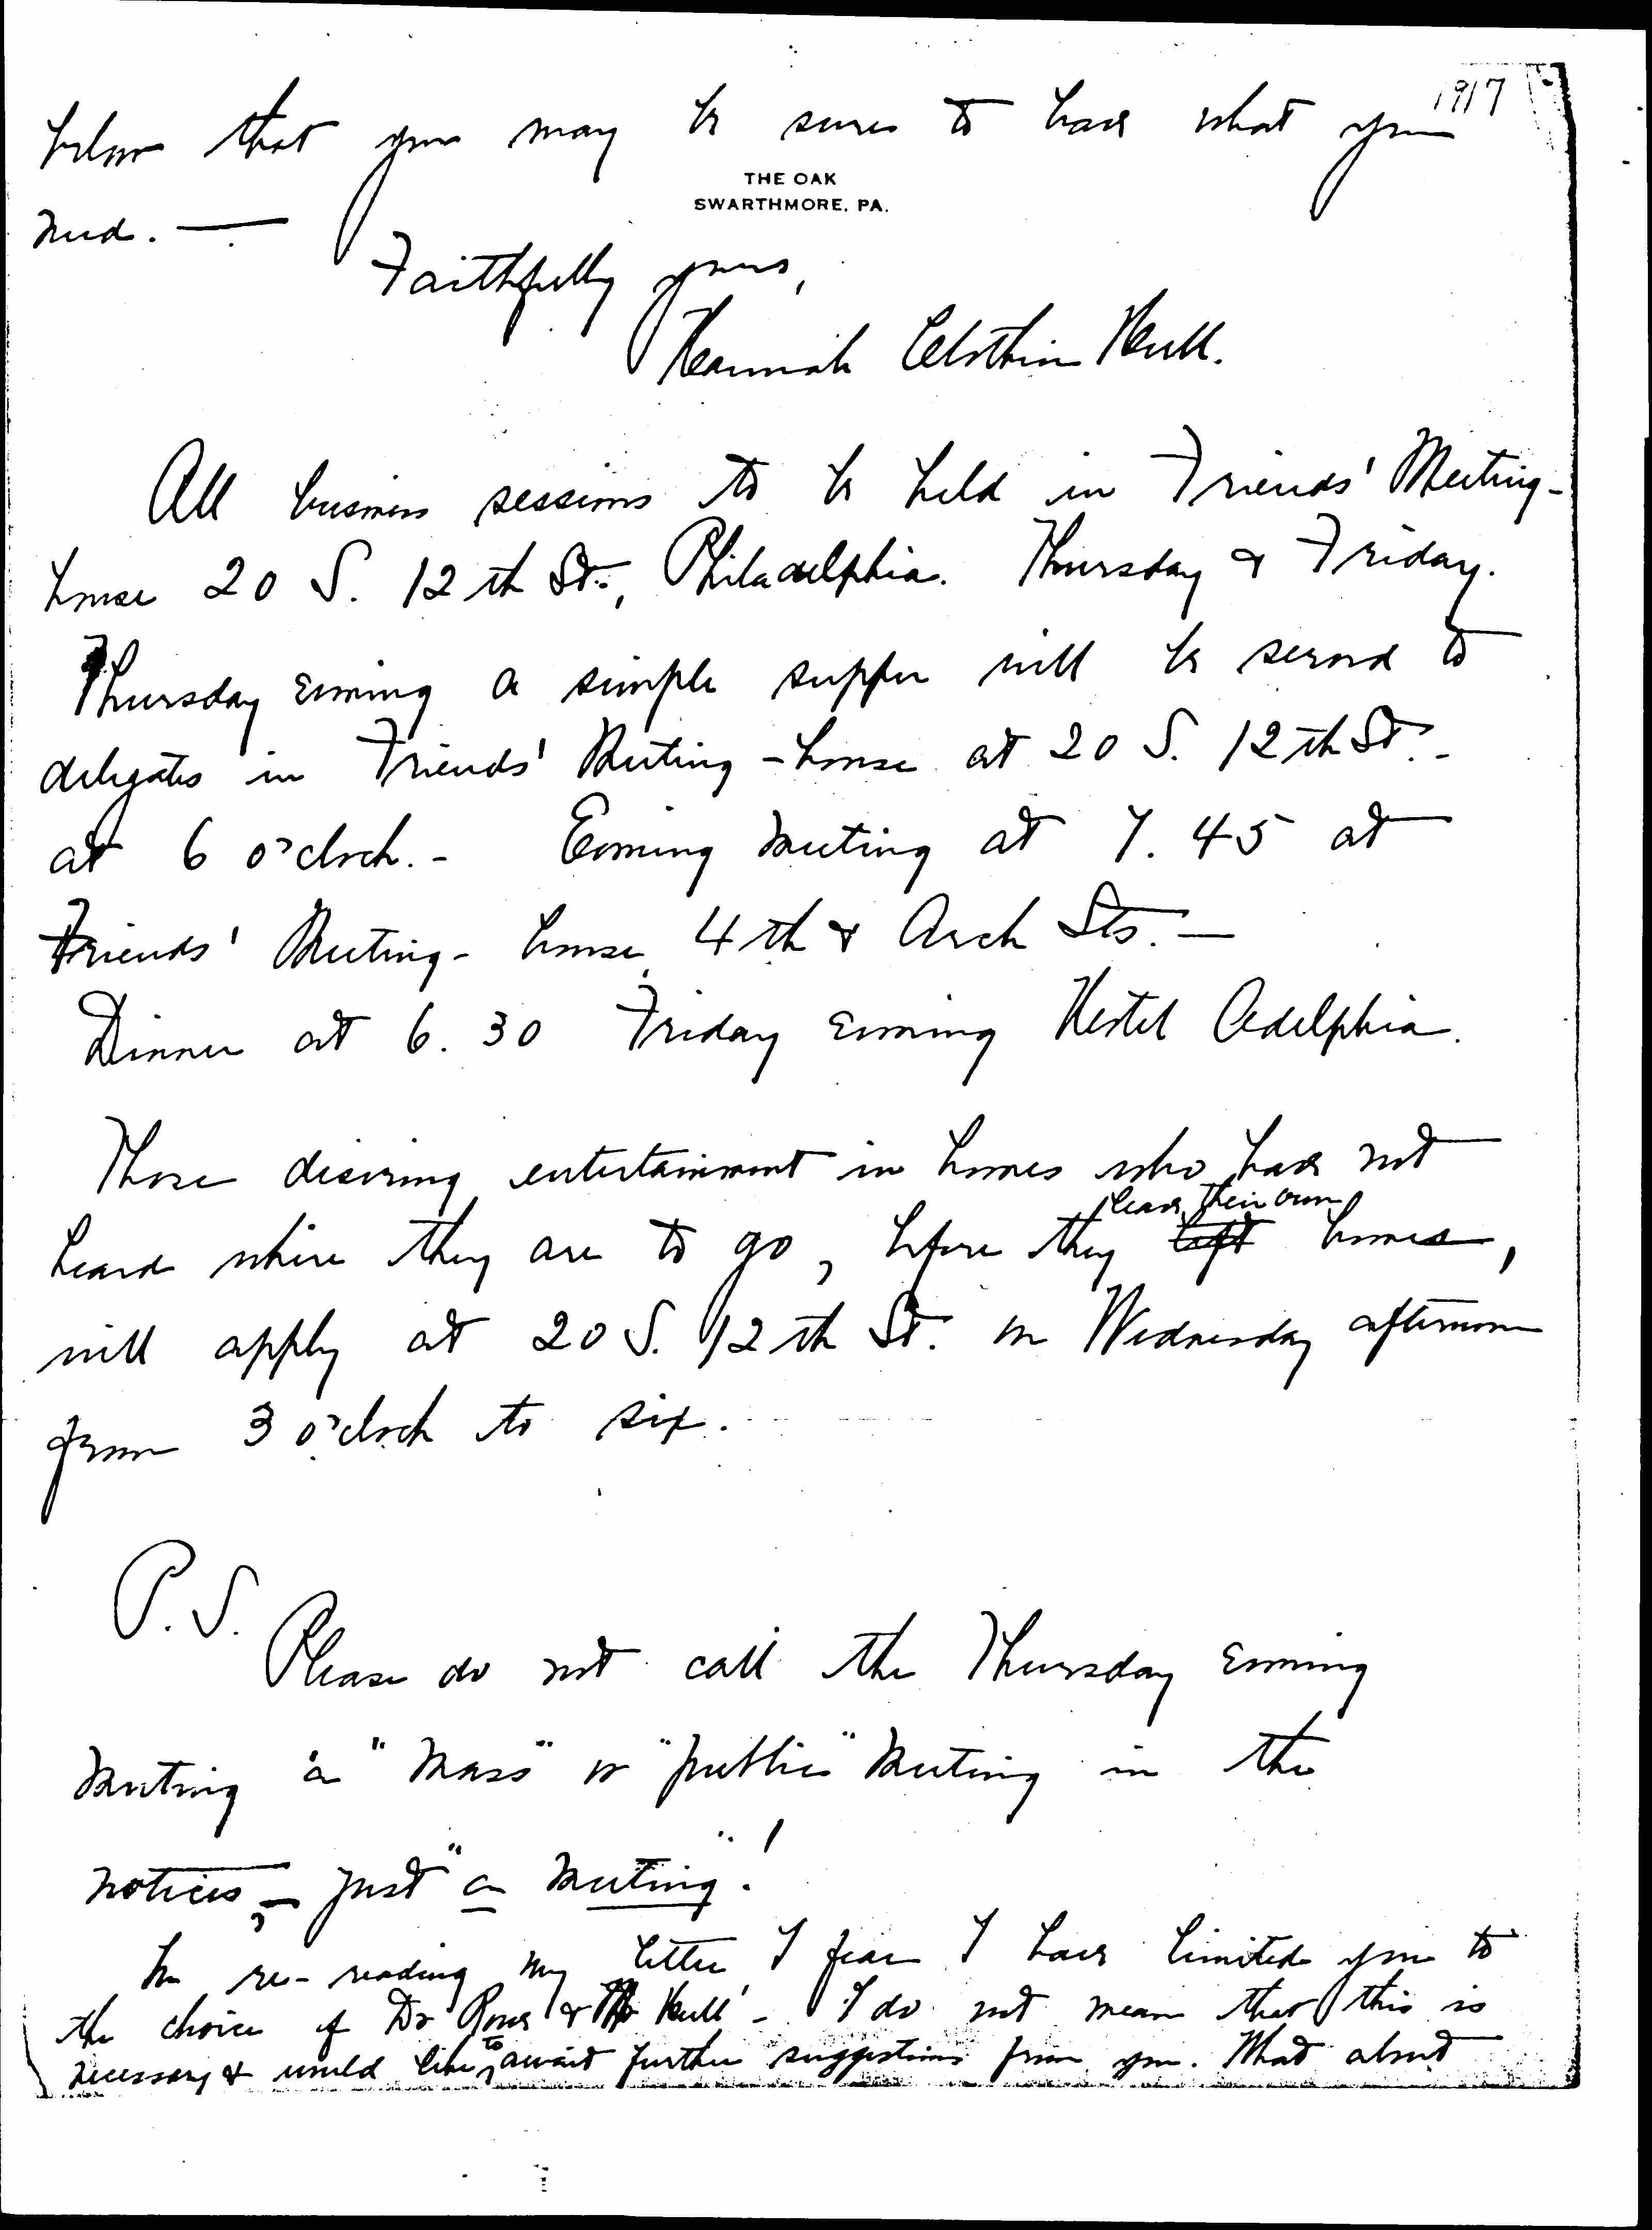 1917
below that you may be sure to have what you
THE OAK
SWARTHMORE, PA.
need. —
Faithfully yours,
Hannah Clothier Hull.
All business sessions to be held in Friends' Meeting-
house 20 S. 12th St., Philadelphia. Thursday & Friday.
Thursday evening a simple supper will be served to
delegates in Friends' Meeting-house at 20 S. 12th St. -
at 6 o'clock. - Evening meeting at 7.45 at
Friends' Meeting-house, 4th & Arch Sts. —
Dinner at 6.30 Friday evening Hotel Adelphia.
Those desiring entertainment in homes who have not
leave their own
heard where they are to go, before they left homes,
will apply at 20 S. 12th St. on Wednesday afternoon
from 3 o'clock to six.
P.S.
Please do not call the Thursday evening
meeting a "mass" or "public" meeting in the
notices, — just "a meeting"!
In re-reading my letter I fear I have limited you to
the choice of Dr & Hull - I do not mean that this is
necessary & would like to await further suggestions from you. What about